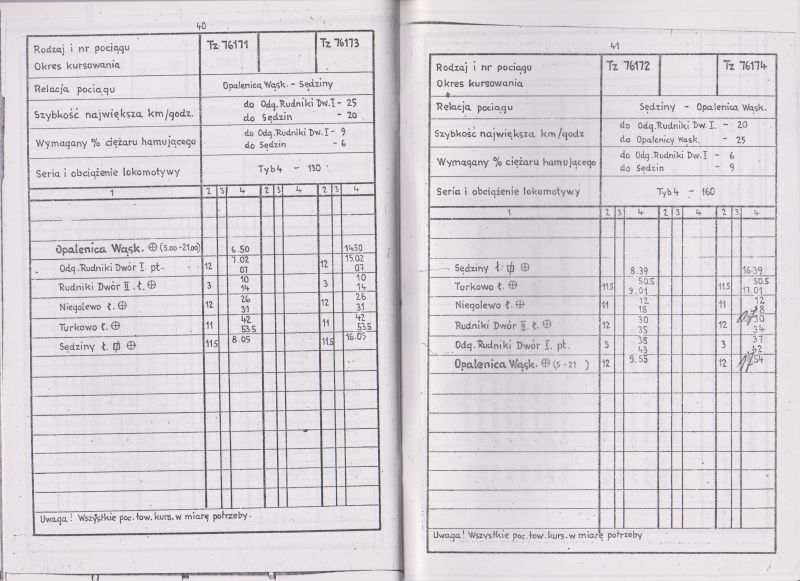 40
Rodzaj i nr pociągu Tz 76171 Tz 76173
Okres kursowania
Relacja pociągu Opalenica Wąsk. - Sędziny
Szybkość największa km/godz. do Odg. Rudniki Dw. I - 25
do Sędzin - 20
Wymagany % ciężaru hamującego do Odg. Rudniki Dw. I - 9
do Sędzin - 6
Seria i obciążenie lokomotywy Tyb4 - 130
1 2 3 4 2 3 4 2 3 4
Opalenica Wąsk. ⊕ (5.00-21.00) 6.50 1450
Odg. Rudniki Dwór I. pt. 12 7.02 07 12 15.02 07
Rudniki Dwór II. ł. ⊕ 3 10 14 3 10 14
Niegolewo ł. ⊕ 12 26 31 12 26 31
Turkowo ł. ⊕ 11 42 53.5 11 42 53.5
Sędziny ł. ⊕ 11.5 8.05 11.5 16.05
Uwaga! Wszystkie poc. tow. kurs. w miarę potrzeby.
41
Rodzaj i nr pociągu Tz 76172 Tz 76174
Okres kursowania
Relacja pociągu Sędziny - Opalenica Wąsk.
Szybkość największa km/godz do Odg. Rudniki Dw. I. - 20
do Opalenicy Wąsk. - 25
Wymagany % ciężaru hamującego do Odg. Rudniki Dw. I - 6
do Sędzin - 9
Seria i obciążenie lokomotywy Tyb4 - 160
1 2 3 4 2 3 4 2 3 4
Sędziny ł. ⊕ 8.39 16.39
Turkowo ł. ⊕ 11.5 50.5 9.01 11.5 50.5 17.01
Niegolewo ł. ⊕ 11 12 18 11 12 18
Rudniki Dwór II. ł. ⊕ 12 30 35 12 30 34
Odg. Rudniki Dwór I. pt. 3 38 43 3 37 42
Opalenica Wąsk. ⊕ (5-21 ) 12 9.55 12 54
Uwaga! Wszystkie poc. tow. kurs. w miarę potrzeby